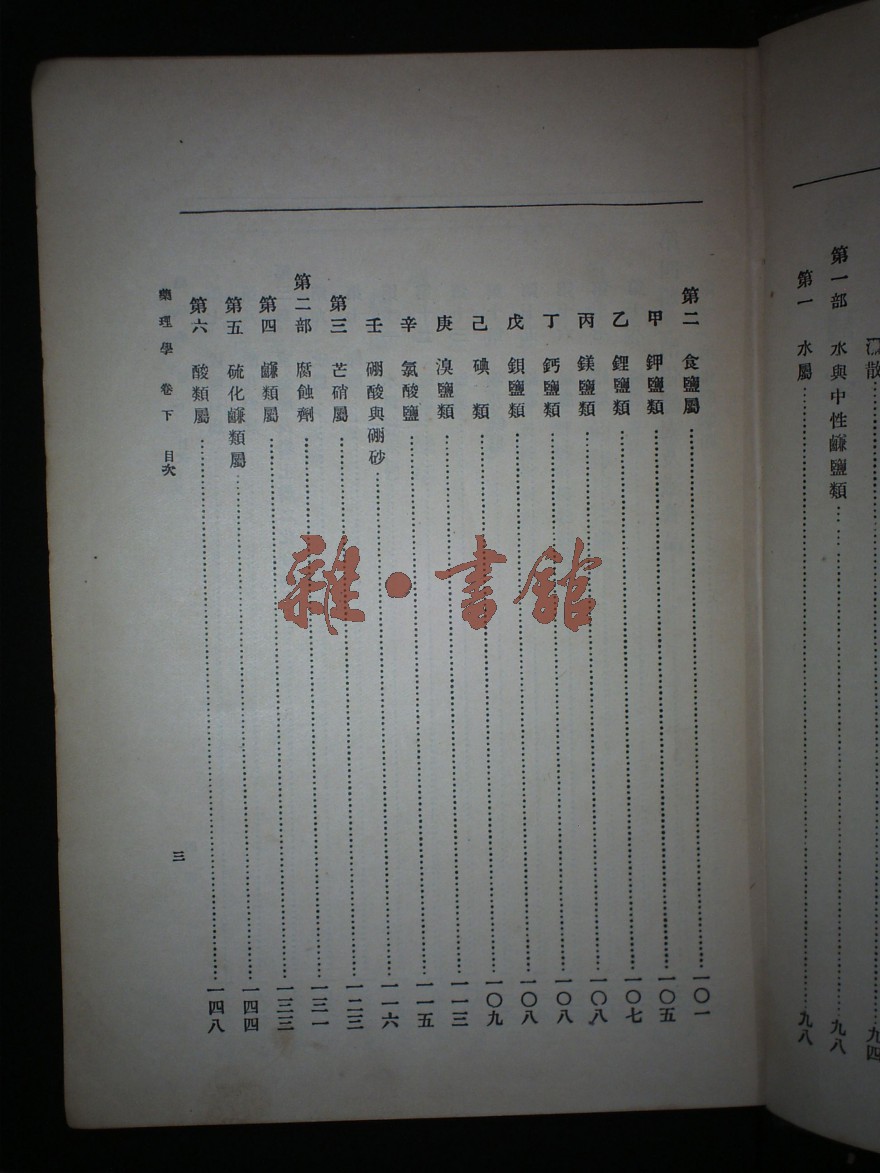 散……九四
第一部　水與中性鹻鹽類……九八
第一　水屬……九八
第二　食鹽屬……一〇一
甲　鉀鹽類……一〇五
乙　鋰鹽類……一〇七
丙　鎂鹽類……一〇八
丁　鈣鹽類……一〇八
戊　鋇鹽類……一〇八
己　碘　類……一〇九
庚　溴鹽類……一一三
辛　氯酸鹽……一一五
壬　硼酸與硼砂……一一六
第三　芒硝屬……一二三
第二部　腐蝕劑……一三一
第四　鹻類屬……一三三
第五　硫化鹻類屬……一四四
第六　酸類屬……一四八
藥理學　卷下　目次
三
雜·書館